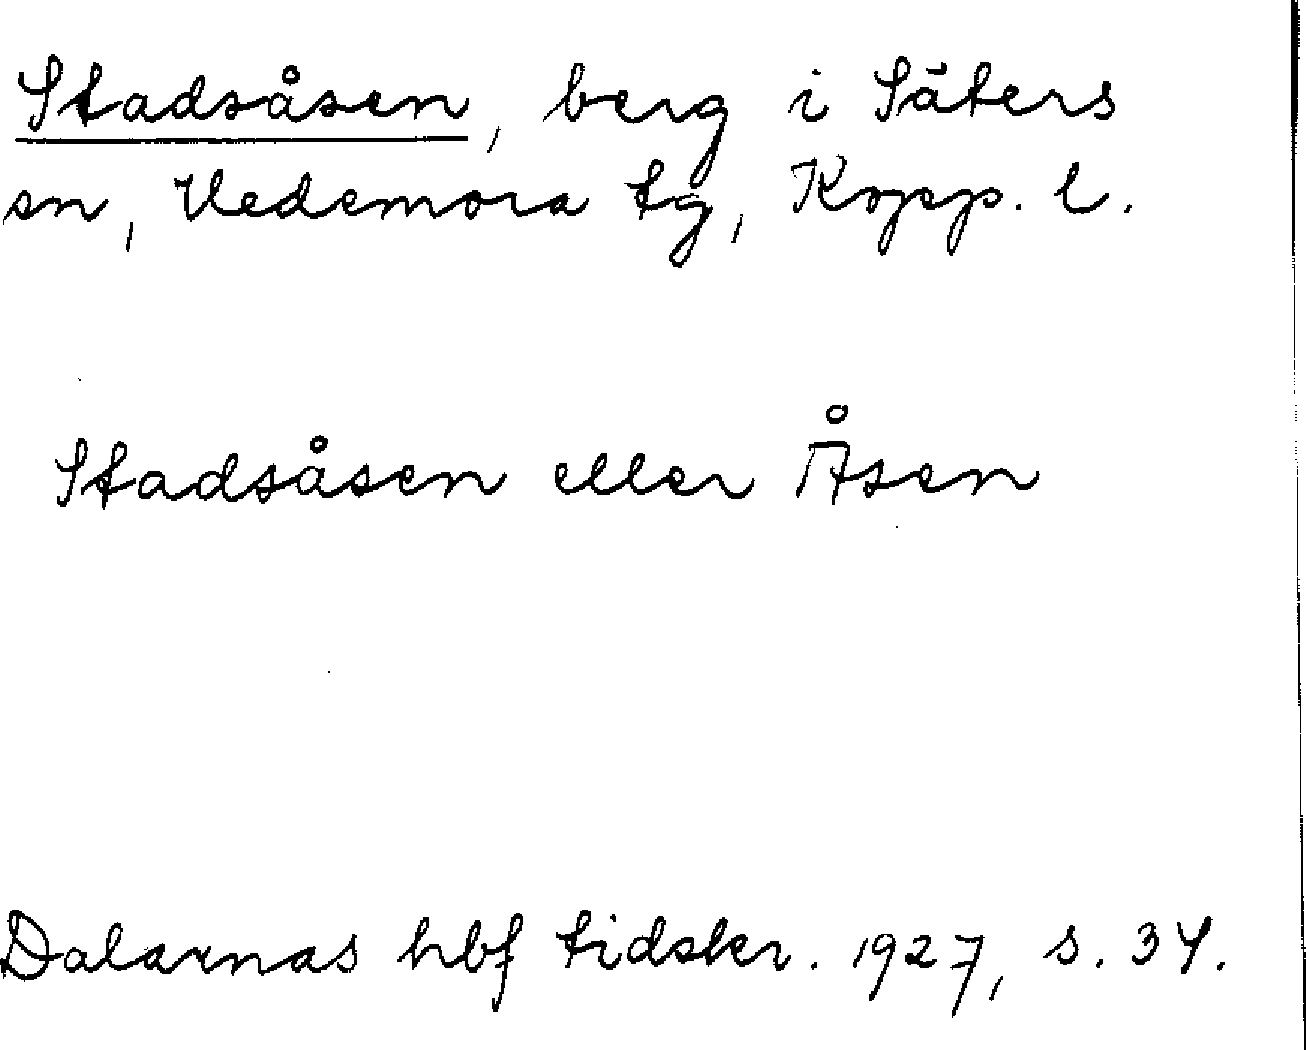 Stadsåsen, berg i Säters
sn, Hedemora tg, Kopp. l.
Stadsåsen eller Åsen
Dalarnas hbf tidskr. 1927, s. 34.